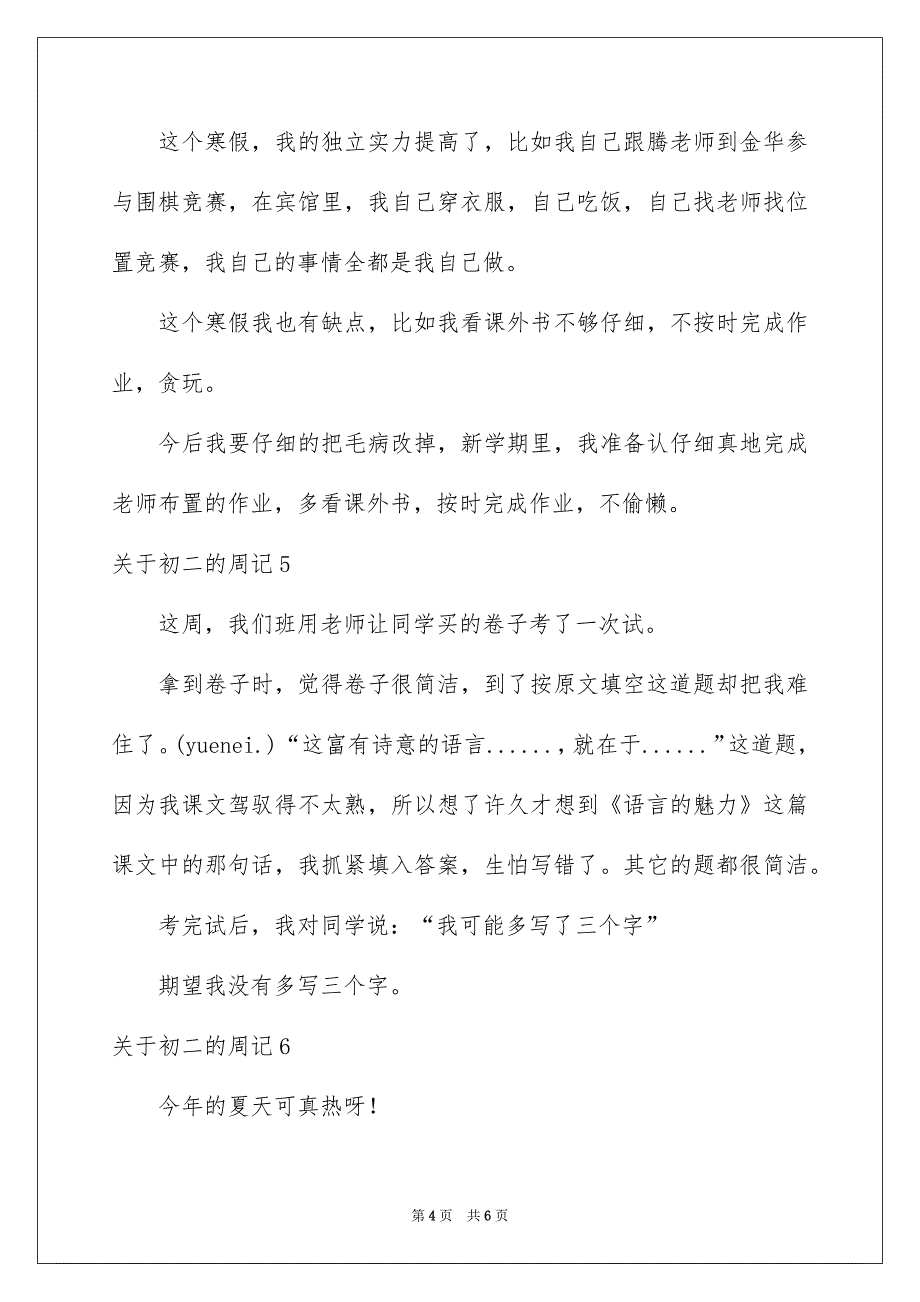 这个寒假，我的独立实力提高了，比如我自己跟腾老师到金华参
与围棋竞赛，在宾馆里，我自己穿衣服，自己吃饭，自己找老师找位
置竞赛，我自己的事情全都是我自己做。
这个寒假我也有缺点，比如我看课外书不够仔细，不按时完成作
业，贪玩。
今后我要仔细的把毛病改掉，新学期里，我准备认仔细真地完成
老师布置的作业，多看课外书，按时完成作业，不偷懒。
关于初二的周记 5
这周，我们班用老师让同学买的卷子考了一次试。
拿到卷子时，觉得卷子很简洁，到了按原文填空这道题却把我难
住了。(yuenei.) “这富有诗意的语言......，就在于......”这道题，
因为我课文驾驭得不太熟，所以想了许久才想到《语言的魅力》这篇
课文中的那句话，我抓紧填入答案，生怕写错了。其它的题都很简洁。
考完试后，我对同学说：“我可能多写了三个字”
期望我没有多写三个字。
关于初二的周记 6
今年的夏天可真热呀！
第 4 页 共 6 页